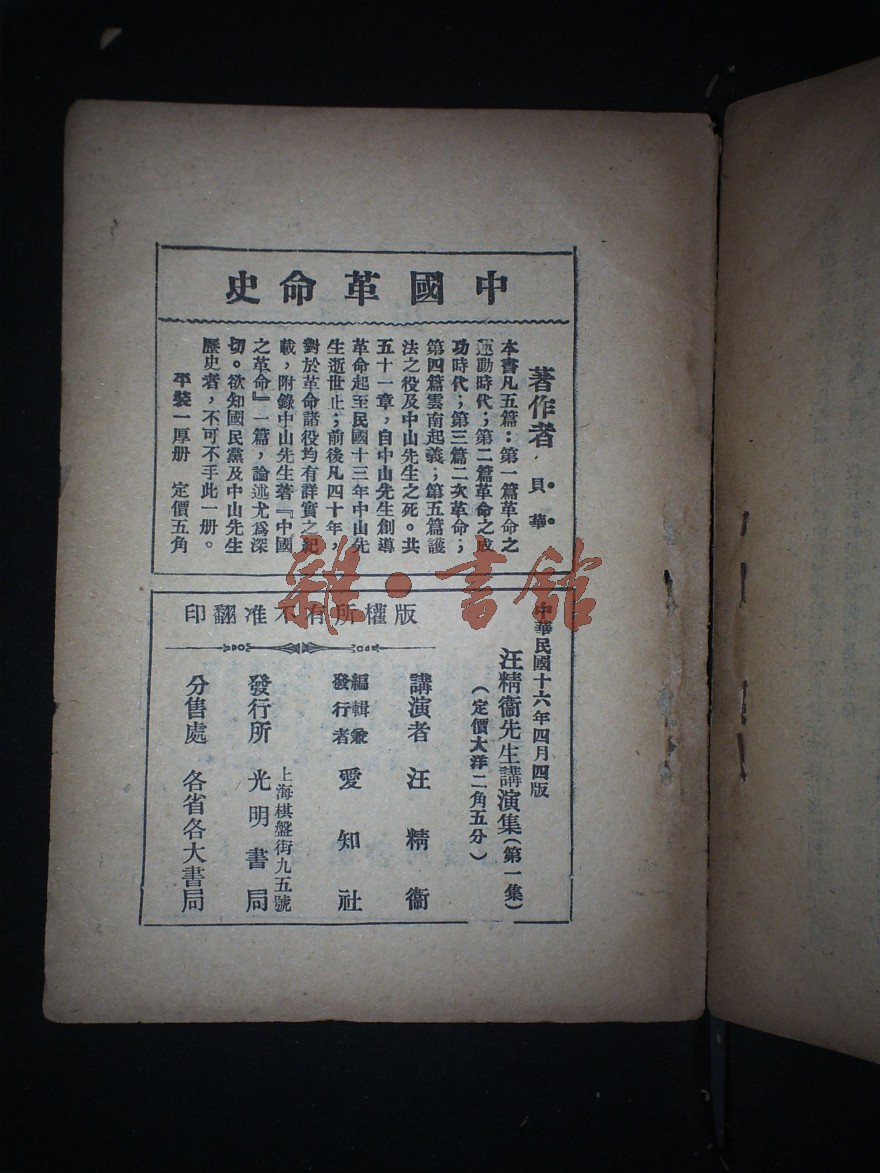 中國革命史
著作者 貝華
本書凡五篇:第一篇革命之
運動時代;第二篇革命之成
功時代;第三篇二次革命;
第四篇雲南起義;第五篇護
法之役及中山先生之死。共
五十一章,自中山先生創導
革命起至民國十三年中山先
生逝世止;前後凡四十年,
對於革命諸役均有詳實之紀
載,附錄中山先生著『中國
之革命』一篇,論述尤爲深
切。欲知國民黨及中山先生
歷史者,不可不手此一册。
平裝一厚册 定價五角
雜·書館
版權所有不准翻印
中華民國十六年四月四版
汪精衞先生講演集(第一集)
(定價大洋二角五分)
講演者 汪精衞
編輯兼發行者 愛知社
上海棋盤街九五號
發行所 光明書局
分售處 各省各大書局